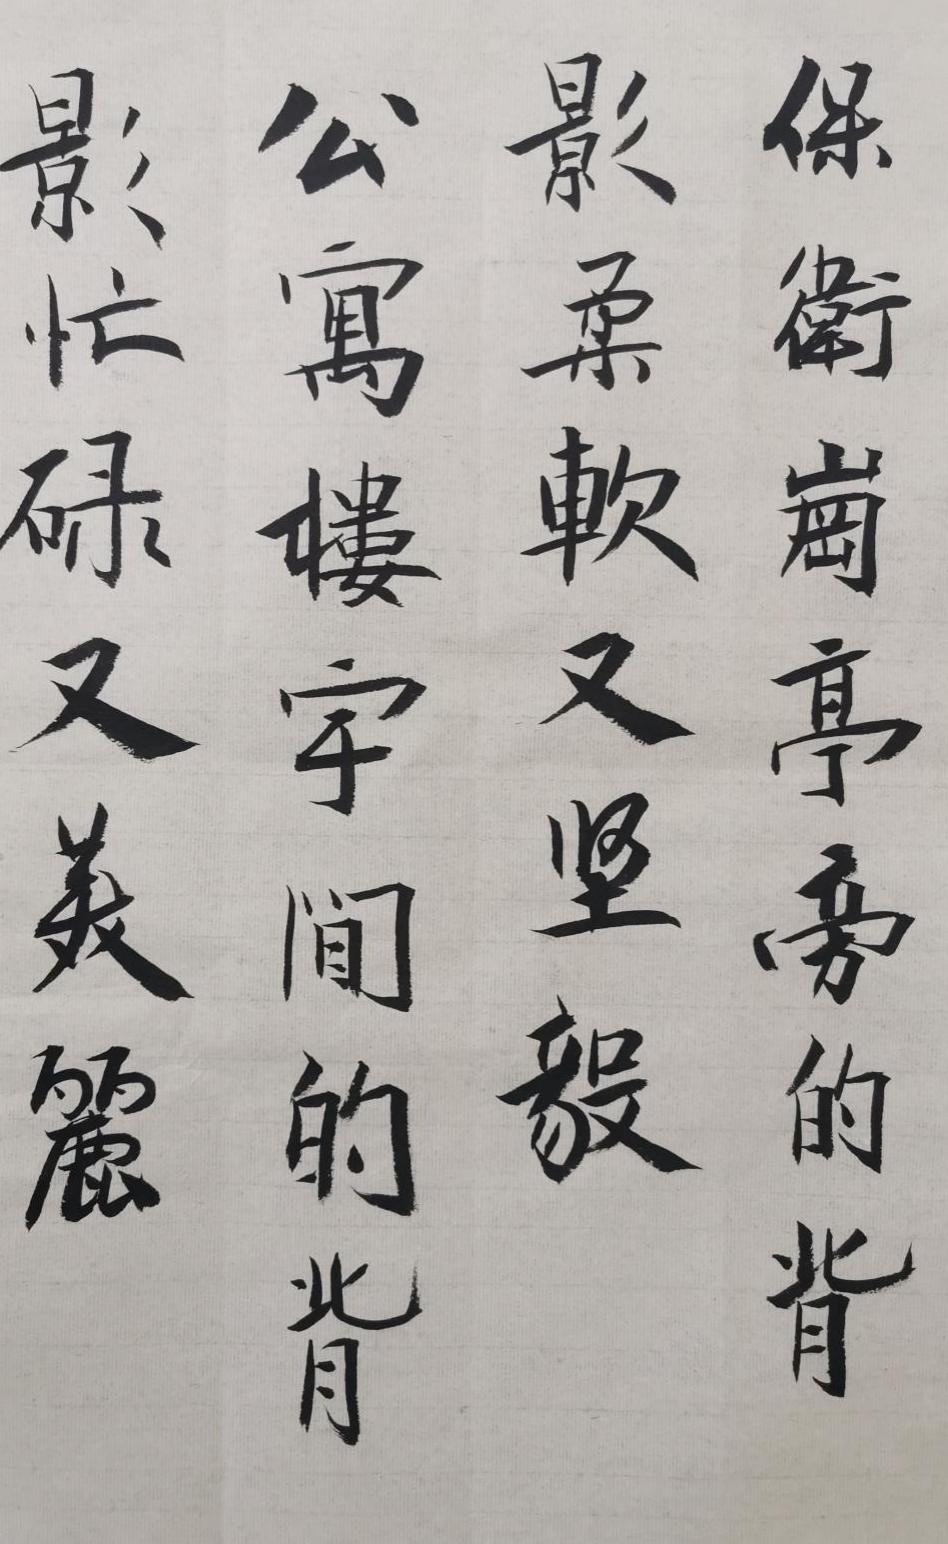 保衛崗亭旁的背
影柔軟又坚毅
公寓樓宇間的背
影忙碌又美麗